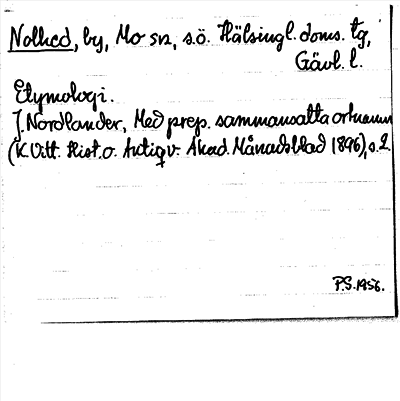 Nolhed, by, Mo sn, s.ö. Hälsingl. doms. tg,
Gävl. l.
Etymologi.
J. Nordlander, Med prep. sammansatta ortnamn
(K. Vitt. Hist. o. Antiqv. Akad. Månadsblad 1896), s. 2.
P.S. 1956.